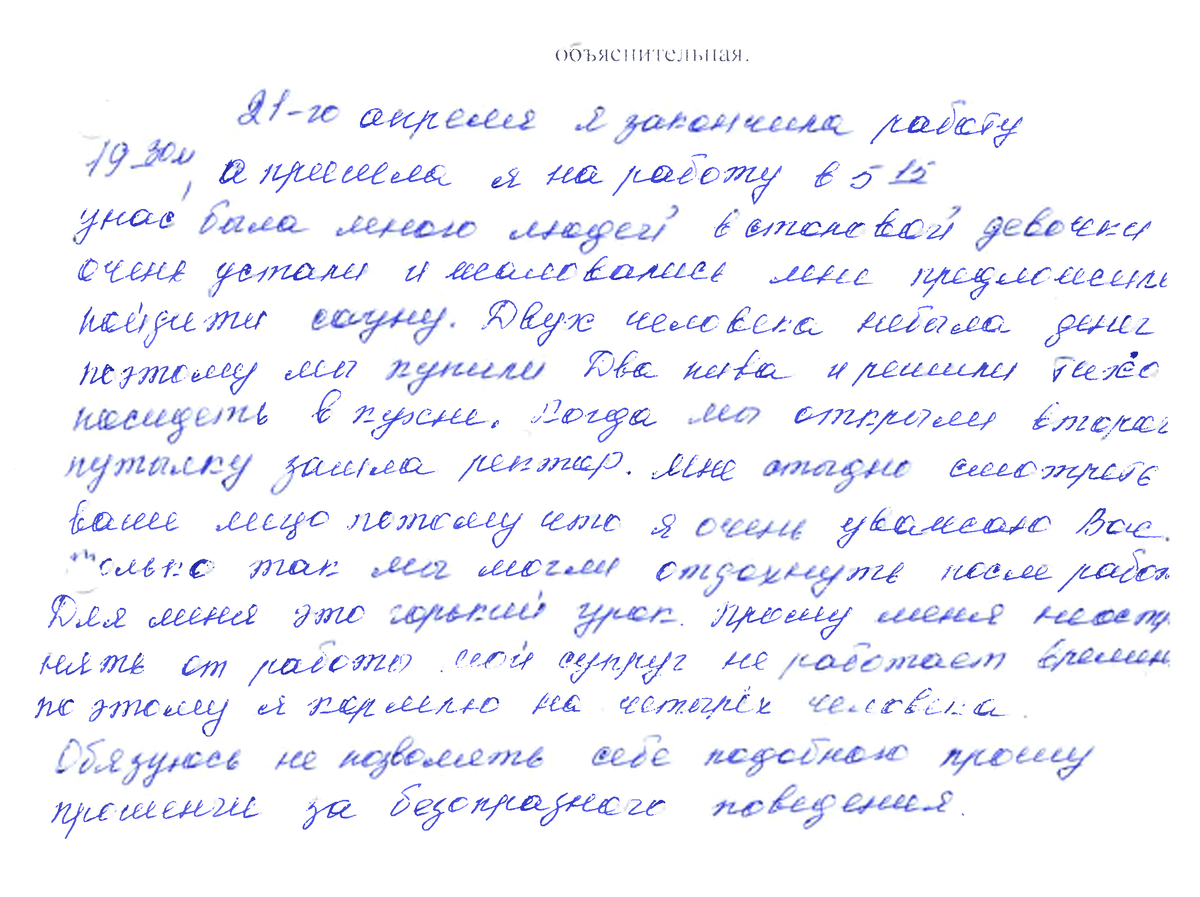 объяснительная.
21-го апреля я закончила работу
19 30м, а пришла я на работу в 5 15
унас была много людей в столовой девочки
очень устали и жаловались мне предложили
пойдити сауну. Двух человека небыла денег
поэтому мы купили Два пива и решили тихо
посидеть в кухне. Когда мы открыли вторая
путылку зашла ректор. Мне стыдно смотреть
ваше лицо потому что я очень уважаю Вас.
только так мы могли отдохнуть после работ
Для меня это горький урок. Прошу меня неостр
нять от работы мой супруг не работает времен
поэтому я кормлю на четырёх человека.
Обязуюсь не позволять себе подобною прошу
прошенчи за безопразного поведения.